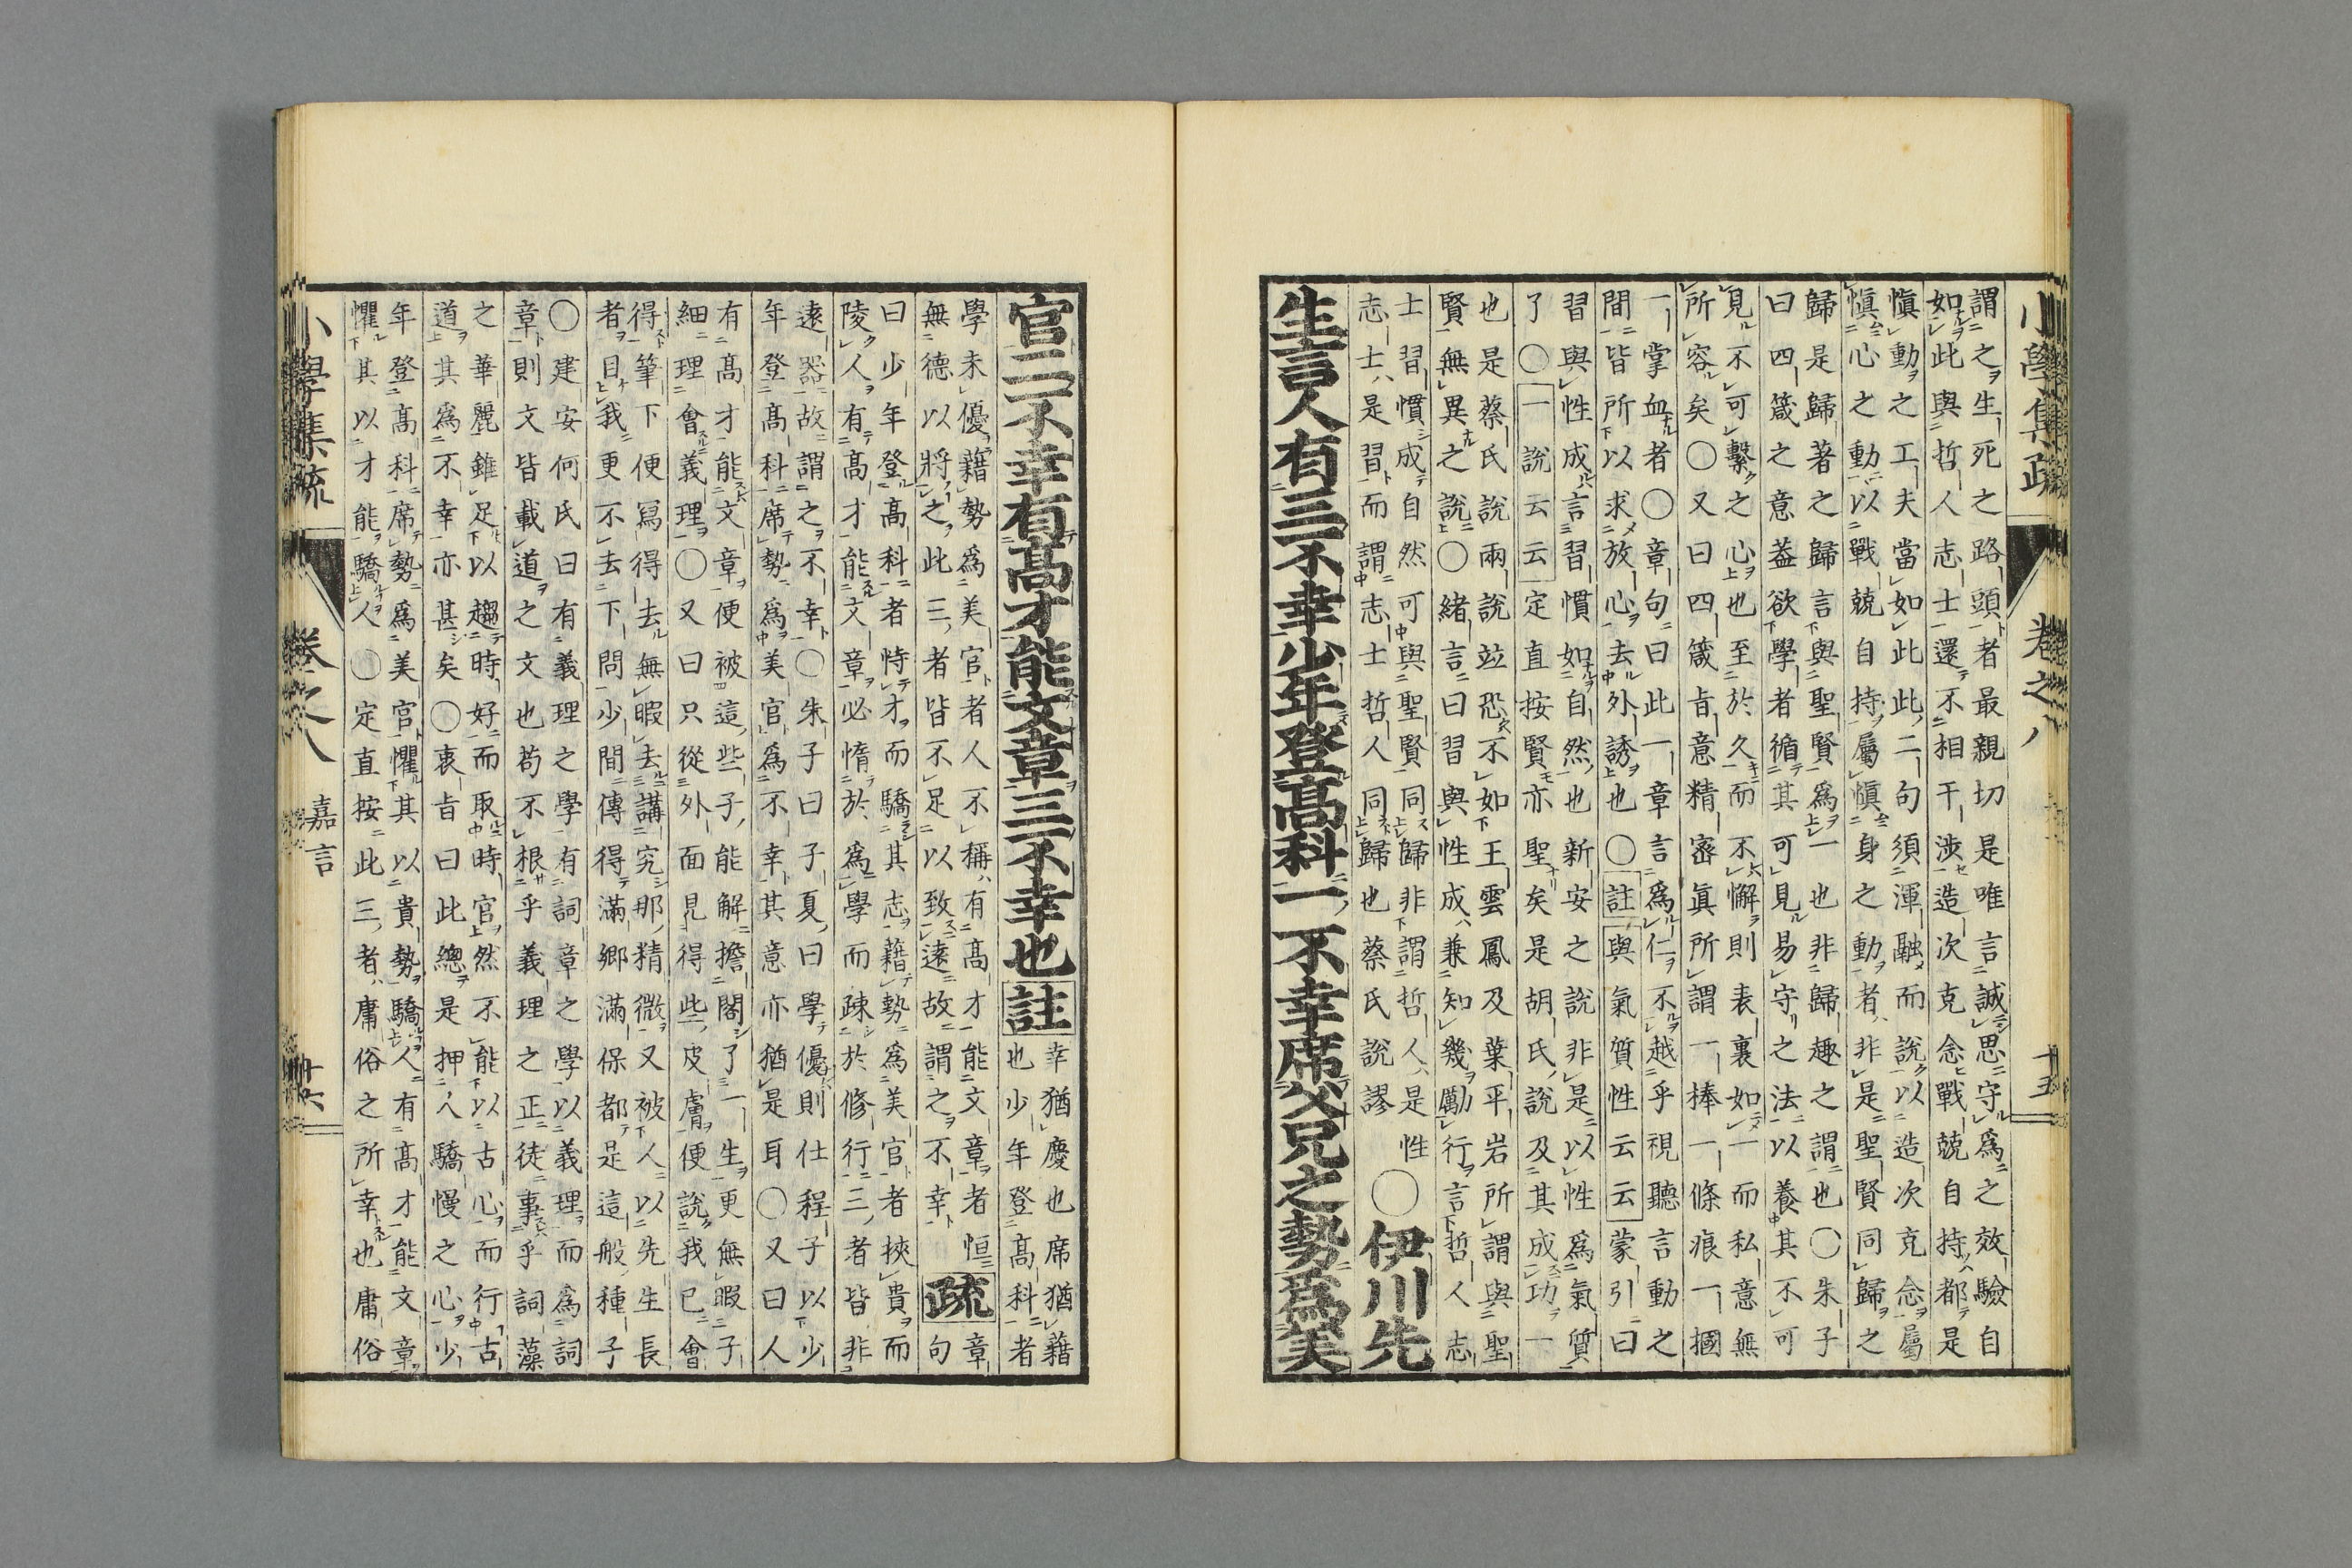 小學集疏 卷之八 十五
謂之生死之路頭者最親切是唯言誠思守爲之效驗自
如此與哲人志士還不相干涉造次克念戰兢自持都是
愼動之工夫當如此此二句須渾融而說以造次克念屬
愼心之動以戰兢自持屬愼身之動者非是聖賢同歸之
歸是歸著之歸言與聖賢爲一也非歸趣之謂也〇朱子
曰四箴之意葢欲學者循其可見易守之法以養其不可
見不可繫之心也至於久而不懈則表裏如一而私意無
所容矣〇又曰四箴旨意精密眞所謂一棒一條痕一摑
一掌血者〇章句曰此一章言爲仁不越乎視聽言動之
間皆所以求放心去外誘也〇註與氣質性云云蒙引曰
習與性成言習慣如自然也新安之說非是以性爲氣質
了〇一說云云定直按賢亦聖矣是胡氏說及其成功一
也是蔡氏說兩說竝恐不如王雲鳳及葉平岩所謂與聖
賢無異之說〇緒言曰習與性成兼知幾勵行言哲人志
士習慣成自然可與聖賢同歸非謂哲人是性
志士是習而謂志士哲人同歸也蔡氏說謬〇伊川先
生言人有三不幸少年登高科一不幸席父兄之勢爲美
官二不幸有高才能文章三不幸也註
幸猶慶也席猶藉
也少年登高科者
學未優藉勢爲美官者人不稱有高才能文章者恒
無德以將之此三者皆不足以致遠故謂之不幸疏
章
句
曰少年登高科者恃才而驕其志藉勢爲美官者挾貴而
陵人有高才能文章必惰於爲學而疎於修行三者皆非
遠器故謂之不幸〇朱子曰子夏曰學優則仕程子以少
年登高科席勢爲美官爲不幸其意亦猶是耳〇又曰人
有高才能文章便被這些子能解擔閣了一生更無暇子
細理會義理〇又曰只從外面見得些皮膚便說我已會
得筆下便寫得去無暇去講究那精微又被人以先生長
者目我更不去下問少間傳得滿鄉滿保都是這般種子
〇建安何氏曰有義理之學有詞章之學以義理而爲詞
章則文皆載道之文也苟不根乎義理之正徒事乎詞藻
之華麗雖足以趨時好而取時官然不能以古心而行古
道其爲不幸亦甚矣〇衷旨曰此總是押人驕慢之心少
年登高科席勢爲美官懼其以貴勢驕人有高才能文章
懼其以才能驕人〇定直按此三者庸俗之所幸也庸俗
小學集疏 卷之八 嘉言 十六